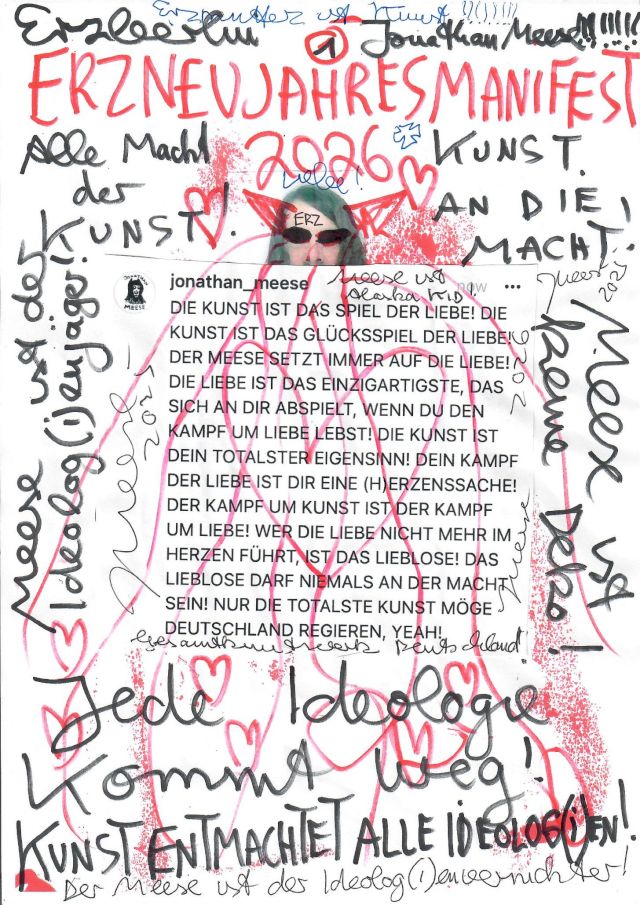 Erzpanther ist Kunst !!(,)!!!
Erzberlin
1
Jonathan Meese!!!!!!!
ERZNEUJAHRESMANIFEST
2026
Alle Macht
der
KUNST!
KUNST.
AN DIE
MACHT!
Liebe!
ERZ
Meese ist
Alaska KID
jonathan_meese
now
...
MEESE
DIE KUNST IST DAS SPIEL DER LIEBE! DIE
KUNST IST DAS GLÜCKSSPIEL DER LIEBE!
DER MEESE SETZT IMMER AUF DIE LIEBE!
DIE LIEBE IST DAS EINZIGARTIGSTE, DAS
SICH AN DIR ABSPIELT, WENN DU DEN
KAMPF UM LIEBE LEBST! DIE KUNST IST
DEIN TOTALSTER EIGENSINN! DEIN KAMPF
DER LIEBE IST DIR EINE (H)ERZENSSACHE!
DER KAMPF UM KUNST IST DER KAMPF
UM LIEBE! WER DIE LIEBE NICHT MEHR IM
HERZEN FÜHRT, IST DAS LIEBLOSE! DAS
LIEBLOSE DARF NIEMALS AN DER MACHT
SEIN! NUR DIE TOTALSTE KUNST MÖGE
DEUTSCHLAND REGIEREN, YEAH!
Meese ist der
Ideolog(i)enjäger!
Meese
2025
Meese
2026
Meese
2025
Meese ist
keine Deko!
Gesamtkunstwerk Deutschland!
Jede Ideologie
Kommt weg!
KUNST ENTMACHTET ALLE IDEOLOG(i)EN!
Der Meese ist der Ideolog(i)envernichter!